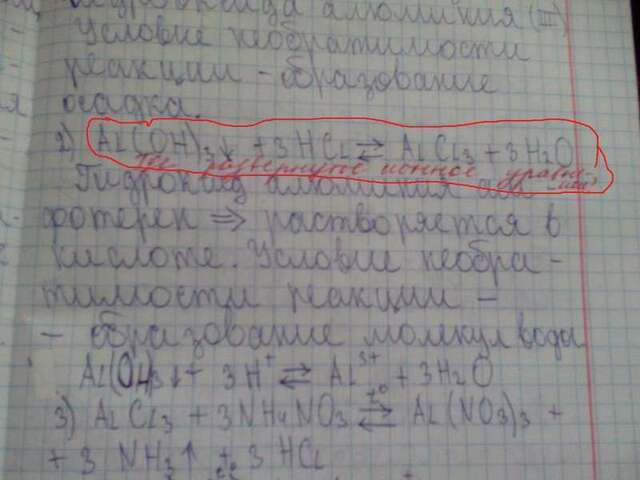 гидроксида алюминия (III)
- Условие необратимости
реакции - образование
осадка.
2) Al(OH)3↓ + 3HCl ⇄ AlCl3 + 3H2O
где развернутое ионное уравне-ние?
Гидроксид алюминия ам-
фотерен ⇒ растворяется в
кислоте. Условие необра-
тимости реакции -
- образование молекул воды
Al(OH)3↓ + 3H⁺ ⇄ Al³⁺ + 3H2O
3) AlCl3 + 3NH4NO3 ⇄ t° Al(NO3)3 +
+ 3 NH3↑ + 3 HCl